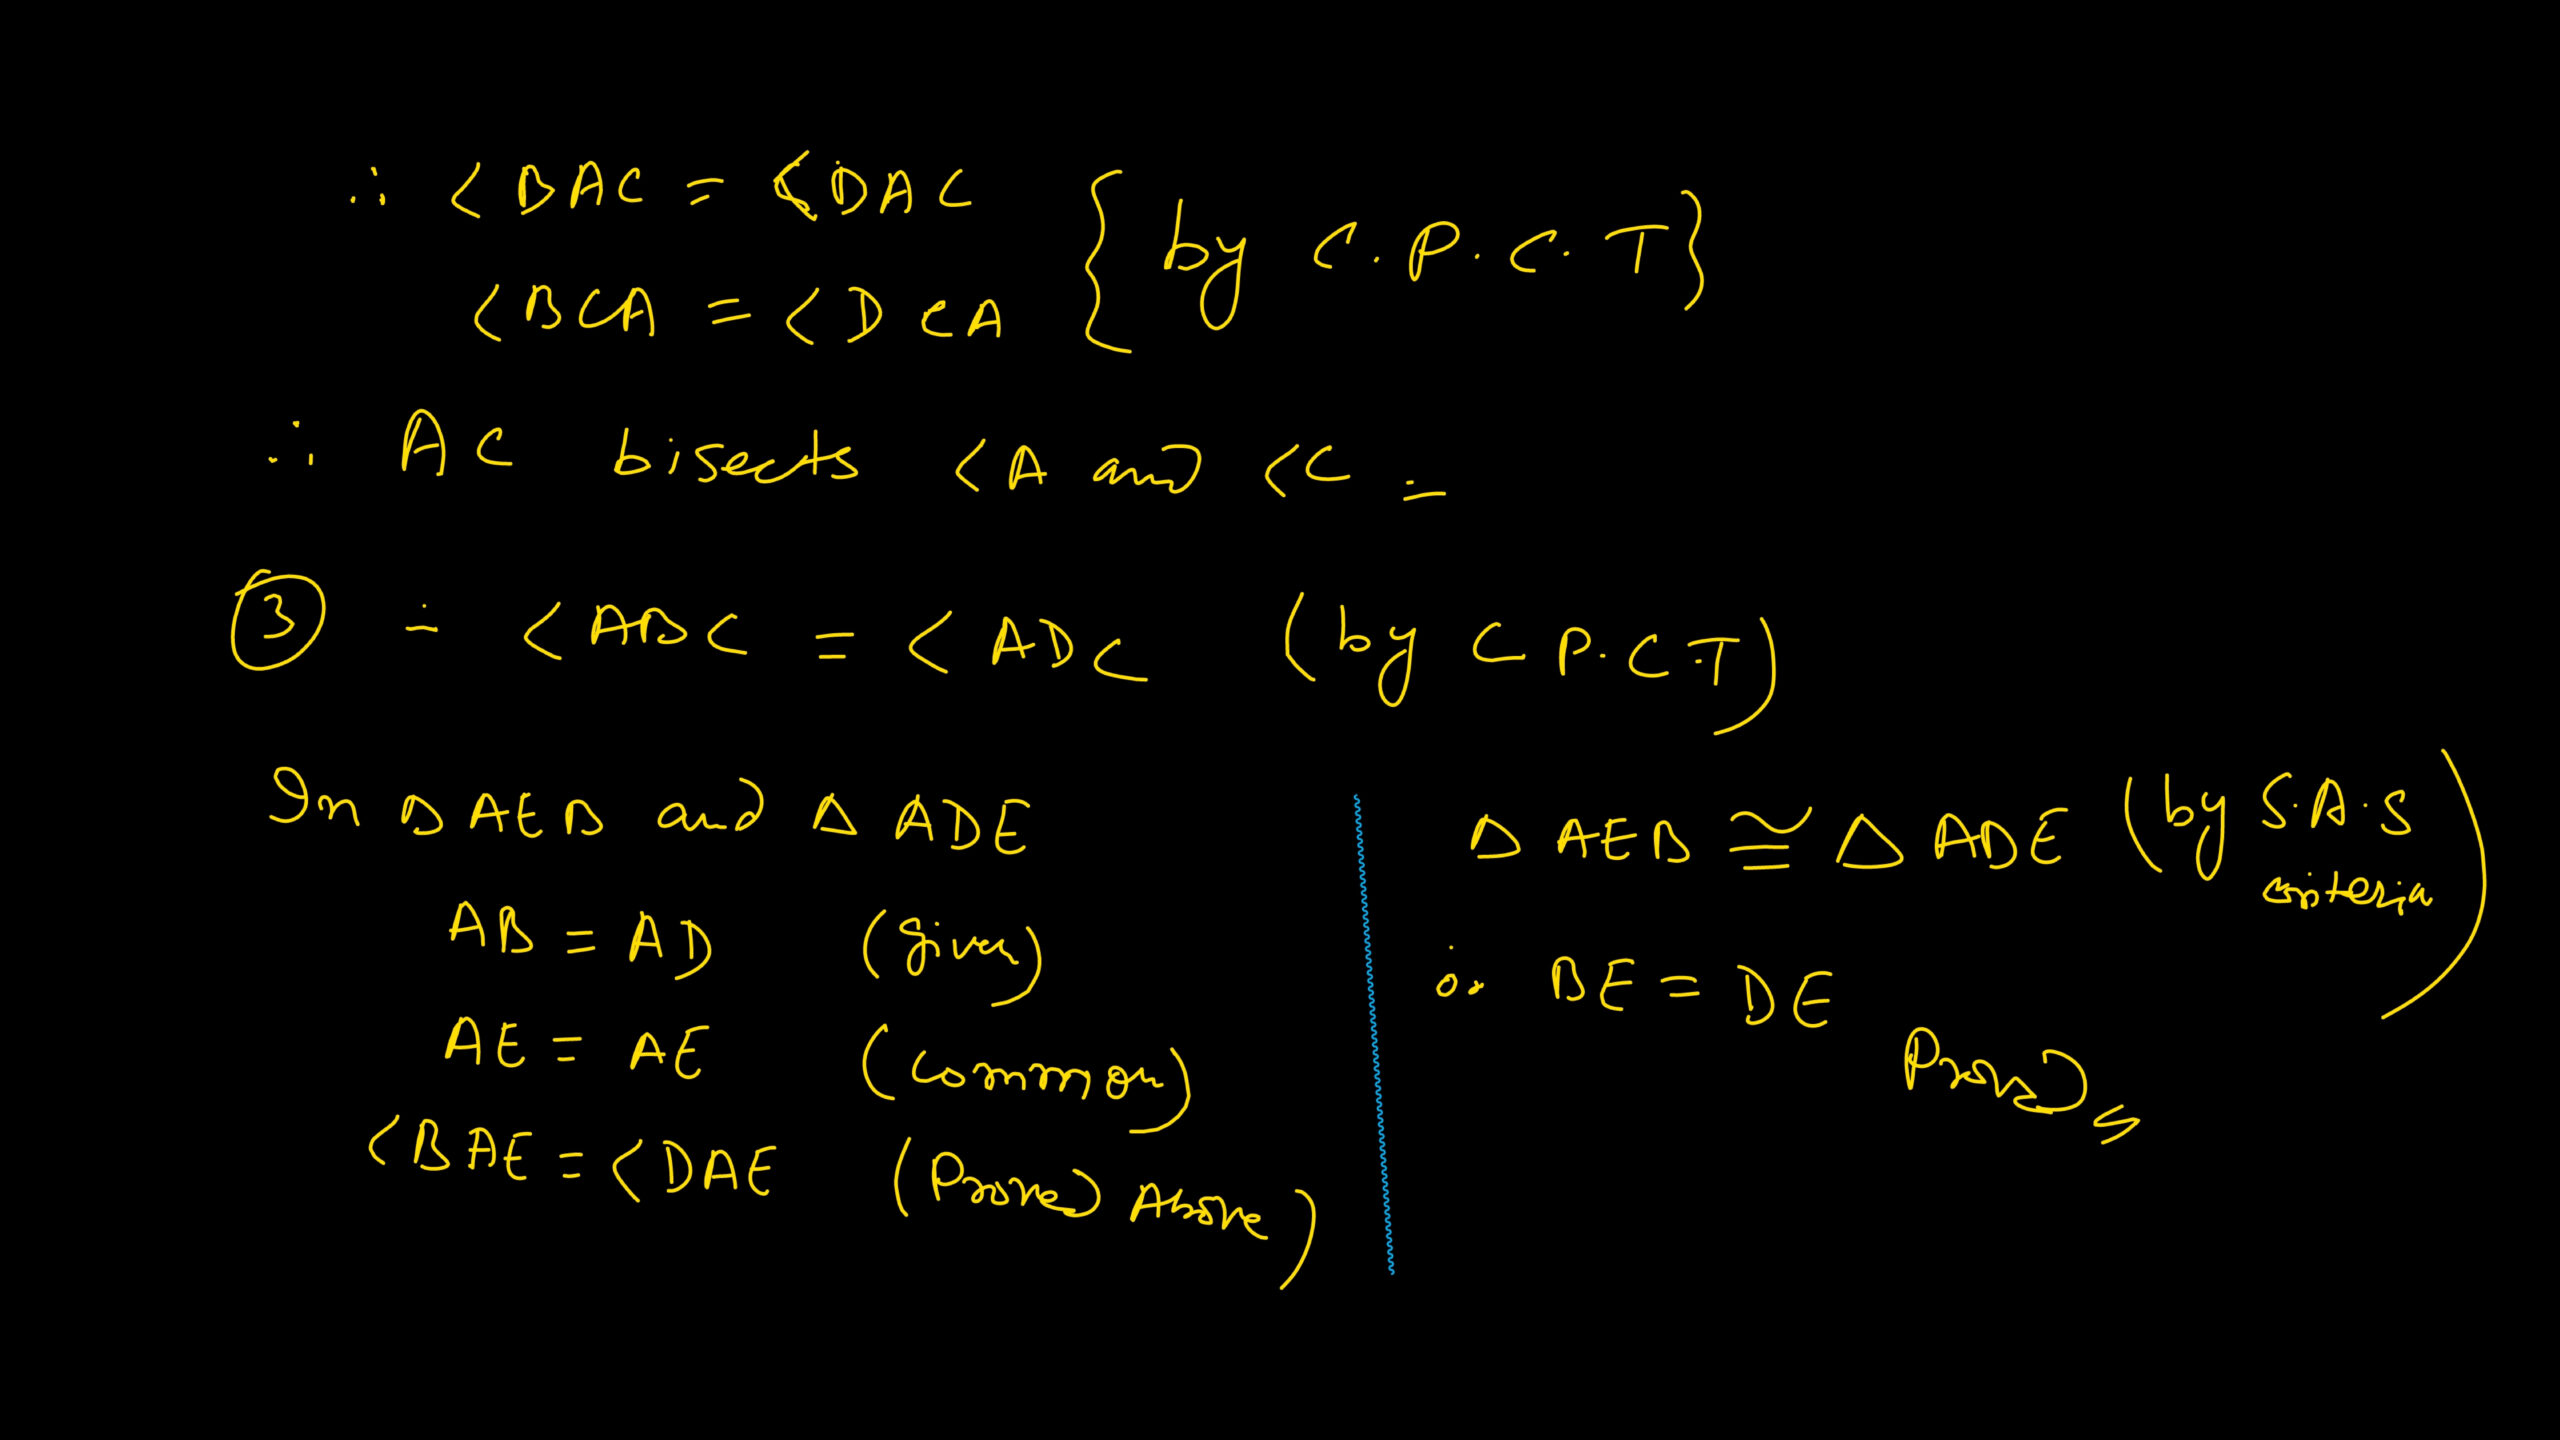 ∴ <BAC = <DAC
<BCA = <DCA
{by C.P.C.T}
∴ AC bisects <A and <C =
③ ∸ <ABC = <ADC (by C P.C.T)
In Δ AEB and Δ ADE
AB = AD (given)
AE = AE (common)
<BAE = <DAE (Proved Above)
Δ AEB ≅ Δ ADE (by S.A.S
criteria)
∴ BE = DE
Proved